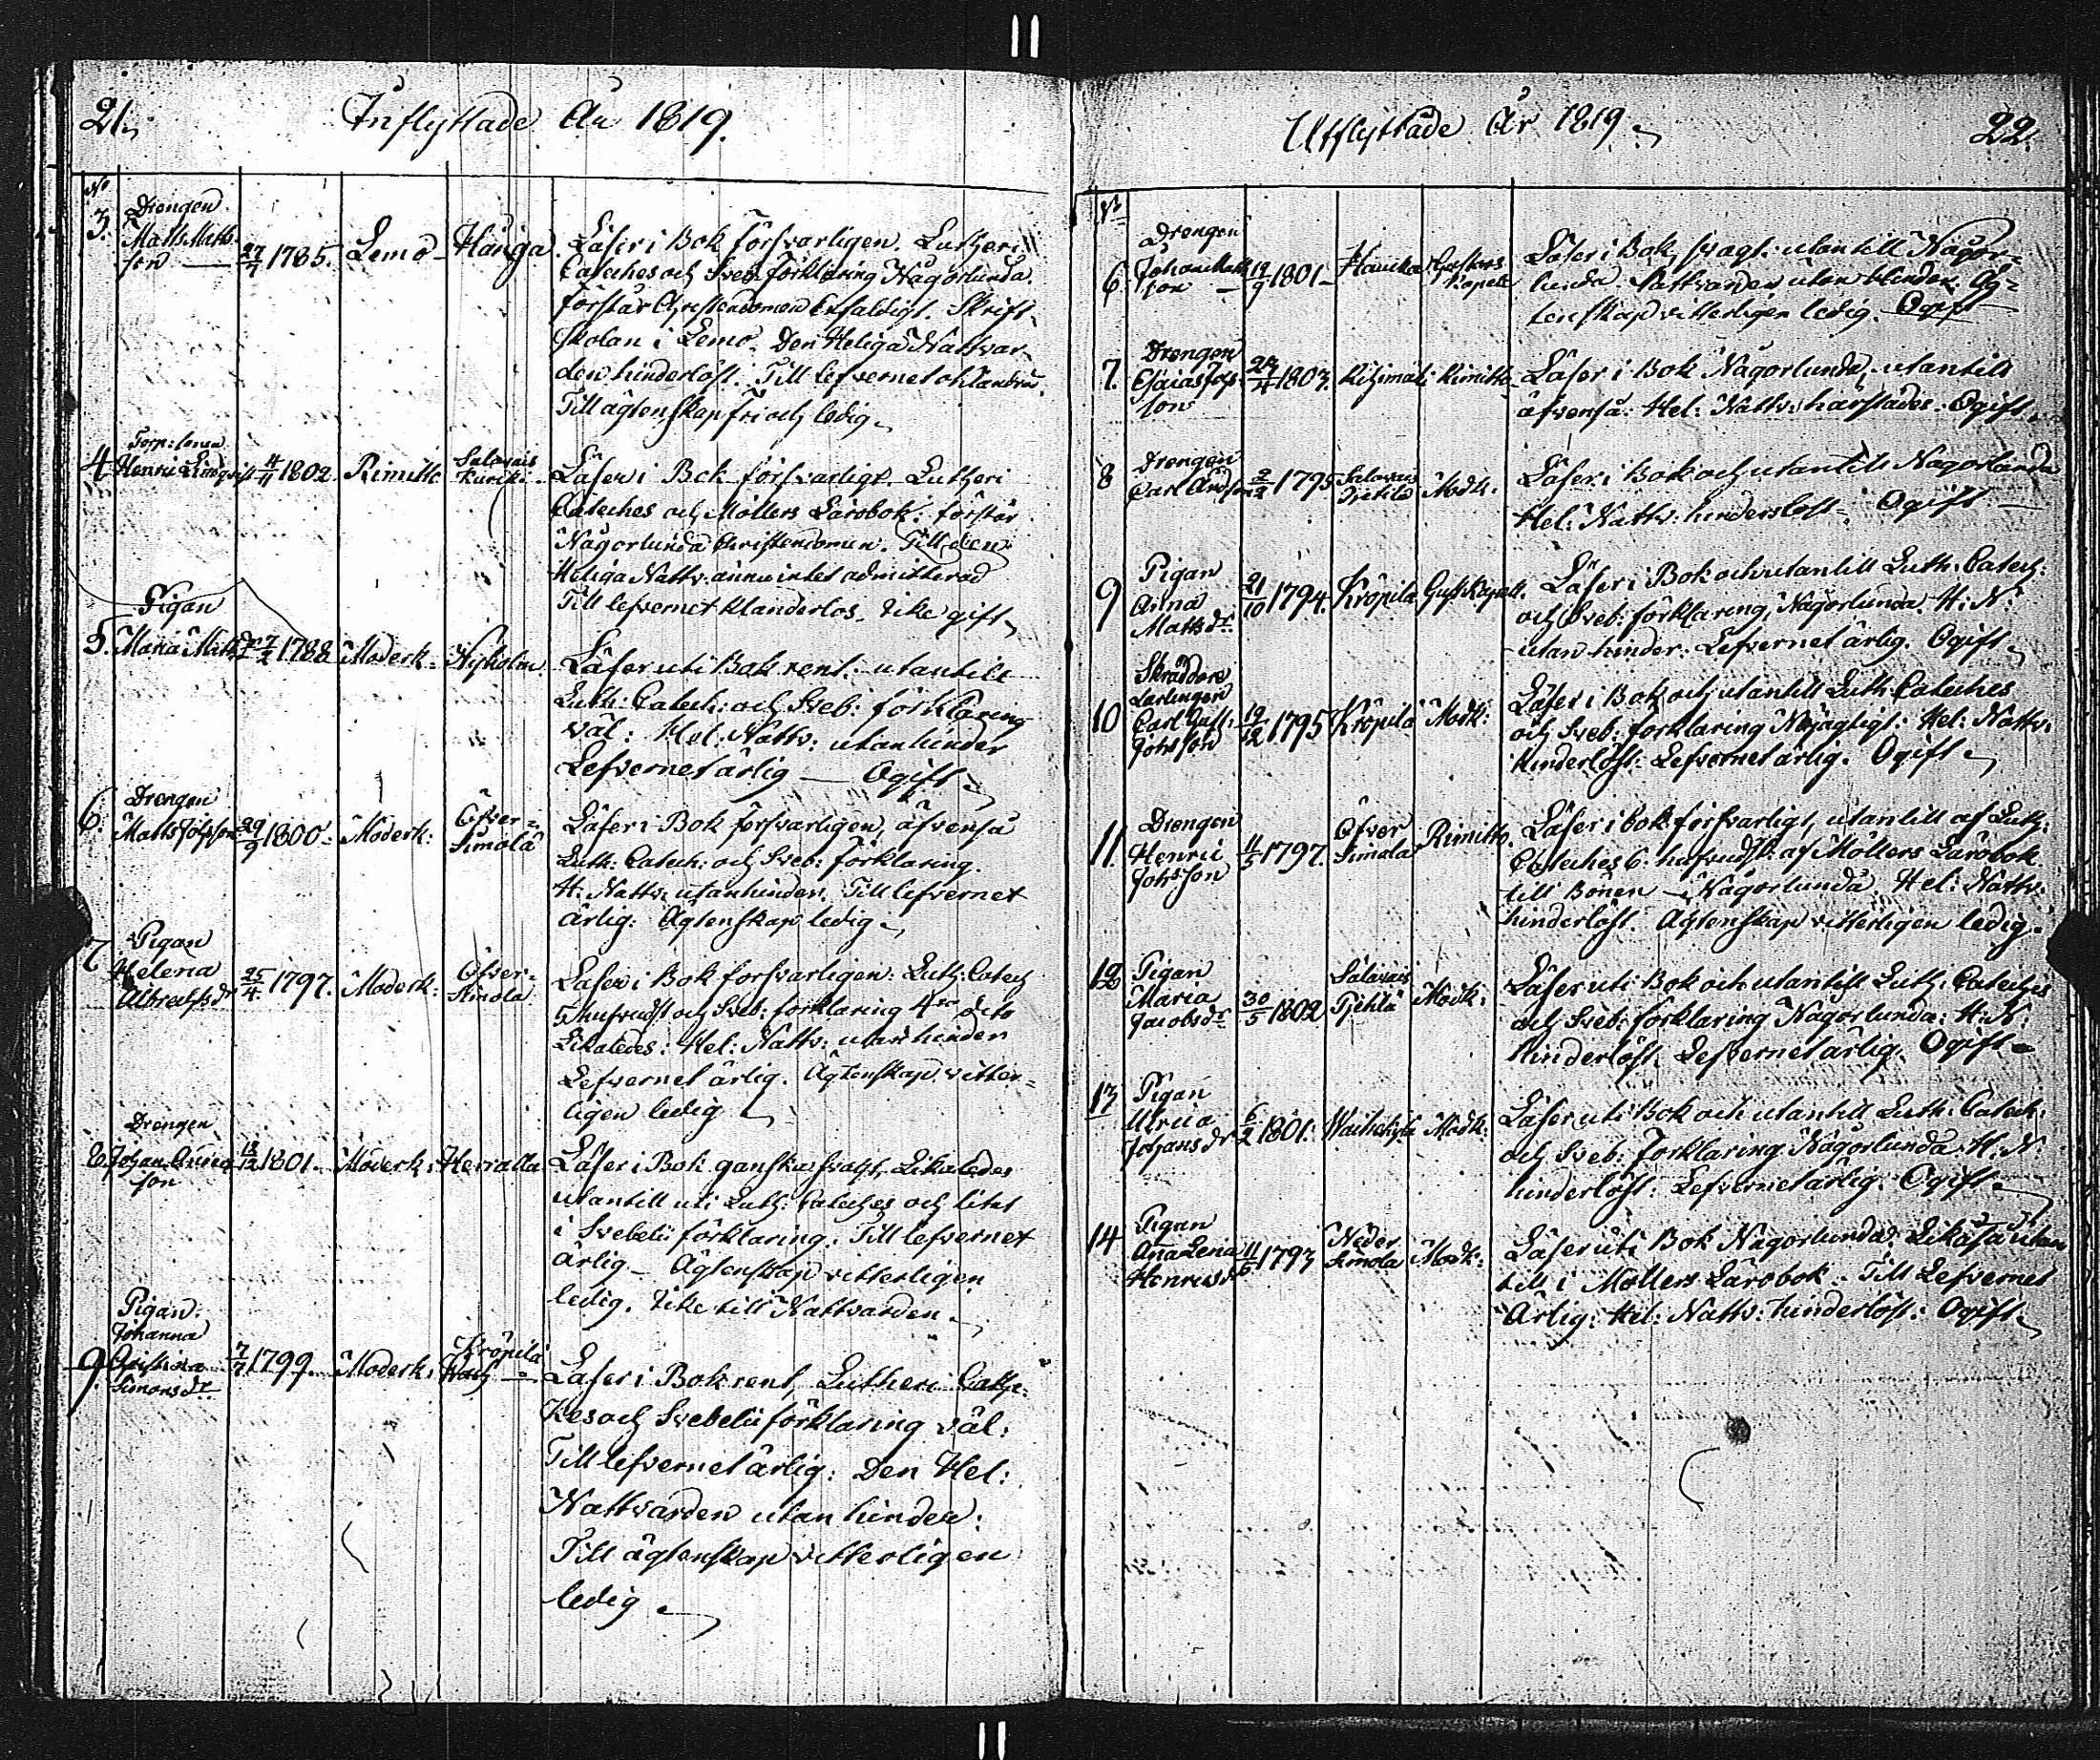 21.
Inflyttade År 1819.
No
3. Drengen
Matts Matts-
son 27/7 1785. Lemo Hauga
Läser i Bok försvarligen. Lutheri
Cateches och Sveb: förklaring Någorlunda.
förstår Christendomen Enfaldigt. Skrift-
skolan i Lemo. Den Heliga Nattvar-
den hinderlöst. Till lefvernet oklandrad.
Till ägtenskap fri och ledig
4 Torp: sonen
Henric Lindqvist 4/11 1802. Rimitto Salavais
Kurcki
Läser i Bok försvarligt. Lutheri
Cateches och Möllers Lärobok. förstår
Någorlunda Christendomen. Till den
Heliga Nattv: ännu intet admitterad
Till lefvernet klanderlös. Icke gift
5. Pigan
Maria Matsdr 7/2 1788 Moderk: Nyholm
Läser uti Bok rent. utantill
Luth: Catech: och Sveb: förklaring
väl: Hel: Nattv: utan hinder
Lefvernet ärlig — Ogift
6. Drengen
Matts Johsson 29/9 1800 Moderk: Öfver-
Simola
Läser i Bok försvarligen, äfvenså
Luth: Catech: och Sveb: förklaring.
H: Nattv: utan hinder. Till lefvernet
ärlig: Ägtenskap ledig
7 Pigan
Helena
Albrechtsdr 25/4 1797. Moderk: Öfver-
Simola
Läser i Bok försvarligen: Luth: Catech
5 hufvudst och Sveb: förklaring 4ra dito
Likaledes: Hel: Nattv: utan hinder
Lefvernet ärlig. Ägtenskap vitter-
ligen ledig
8 Drengen
Johan Anders
son 18/12 1801. Moderk: Herralla
Läser i Bok ganska svagt, Likaledes
utantill uti Luth: Cateches och litet
i Svebelii förklaring. Till lefvernet
ärlig — Ägtenskap vitterligen
ledig. Icke till Nattvarden
9. Pigan
Johanna
Christina
Simonsdr 7/7 1799. Moderk: Kröpilä
Läser i Bok rent, Lutheri Cathe-
kes och Svebelii förklaring väl:
Till lefvernet ärlig: Den Hel:
Nattvarden utan hinder:
Till ägtenskap vitterligen
ledig
Utflyttade År 1819
22.
No
6. Drengen
Johan Matts
son 19/9 1801 Haucka Gustavs
Capell
Läser i Bok, svagt. utantill Någor-
lunda. Nattvarden utan hinder. Äg-
tenskap vitterligen ledig. Ogift
7. Drengen
Esaias Johs
son 24/11 1803. Rimitto
Läser i Bok Någorlunda, utantill
äfvenså. Hel: Nattv: härstädes. Ogift
8 Drengen
Carl Andsson 2/2 1795 Salavais
Pjetilä Modk:
Läser i Bok och utantill Någorlunda
Hel: Nattv: hinderslöst. Ogift
9 Pigan
Anna
Mattsdr 21/10 1794. Kröpilä Gust Capell.
Läser i Bok och utantill Luth: Catech:
och Sveb: förklaring, Någorlunda. H: N:
utan hinder: Lefvernet ärlig. Ogift
10 Skräddare
Lärlingen
Carl Gust:
Johsson 19/12 1795 Kröpilä Modk:
Läser i Bok och utantill Luth Cateches
och Sveb: förklaring Nöjagtigt: Hel: Nattv:
hinderlöst: Lefvernet ärlig. Ogift
11. Drengen
Henric
Johsson 11/5 1797. Öfver
Simola Rimitto.
Läser i bok försvarligt, utantill af Luth:
Cateches 6: hufvudst: af Möllers Lärobok
till Bönen — Någorlunda. Hel: Nattv:
hinderlöst. Ägtenskap vitterligen ledig
12 Pigan
Maria
Jacobsdr 30/5 1802 Salavais
Pjetilä Modk:
Läser uti Bok och utantill Luth: Cateches
och Sveb: förklaring Någorlunda: H: N:
hinderlöst. Lefvernet ärlig. Ogift
13 Pigan
Ulrica
Johansdr 6/2 1801. Modk:
Läser uti Bok och utantill Luth: Catech:
och Sveb: förklaring Någorlunda. H: N:
hinderlöst: Lefvernet ärlig. Ogift
14 Pigan
Ana Lena
Henricsdr 11/6 1793 Neder
Simola Modk:
Läser uti Bok Någorlunda. Likaså utan
till i Möllers Lärobok. Till Lefvernet
Ärlig: Hel: Nattv: hinderlöst: Ogift